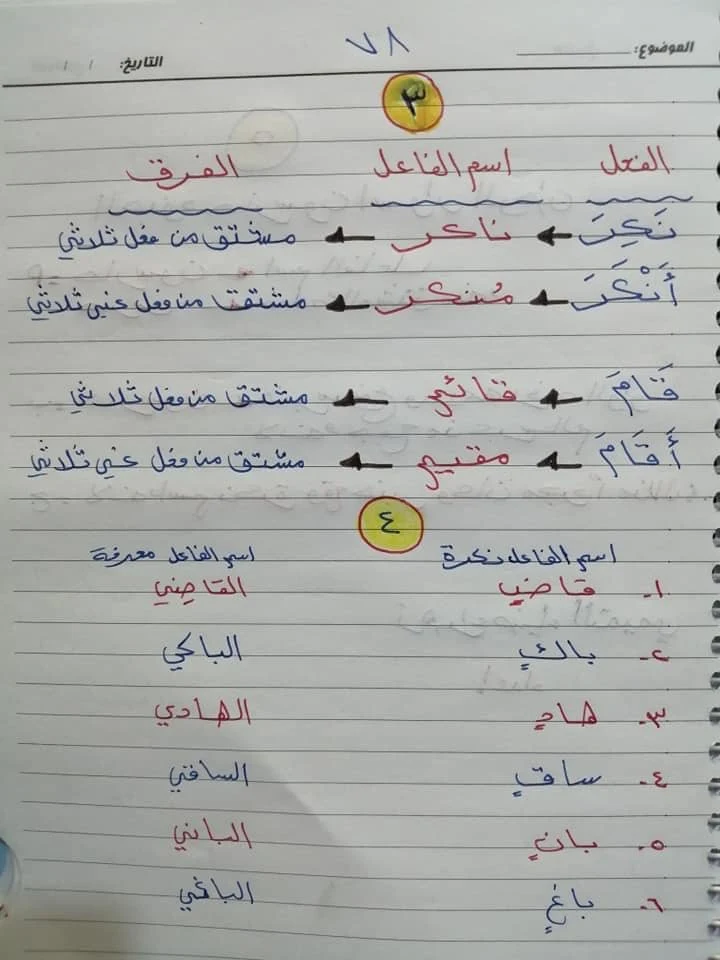 الموضوع: ٧٨ التاريخ: / /
٣
الفعل اسم الفاعل الفرق
نَكِرَ ناكر مشتق من فعل ثلاثي
أَنْكَرَ مُنكر مشتق من فعل غير ثلاثي
قَامَ قائم مشتق من فعل ثلاثي
أَقَامَ مقيم مشتق من فعل غير ثلاثي
٤
اسم الفاعل نكرة اسم الفاعل معرفة
١- قاضٍ القاضِي
٢- باكٍ الباكي
٣- هادٍ الهادي
٤- ساقٍ الساقي
٥- بانٍ الباني
٦- باغٍ الباغي